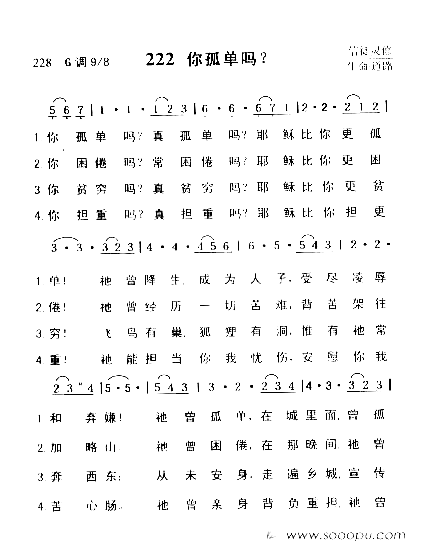 228 G调9/8 222 你孤单吗? 信徒灵修
生命道路
5 6 7 | 1 · 1 · 1 2 3 | 6 · 5 · 6 7 1 | 2 · 2 · 2 1 2 |
1 你 孤 单 吗? 真 孤 单 吗? 耶 稣 比 你 更 孤
2 你 困 倦 吗? 常 困 倦 吗? 耶 稣 比 你 更 困
3 你 贫 穷 吗? 真 贫 穷 吗? 耶 稣 比 你 更 贫
4. 你 担 重 吗? 真 担 重 吗? 耶 稣 比 你 担 更
3 · 3 · 3 2 3 | 4 · 4 · 4 5 6 | 6 · 5 · 5 4 3 | 2 · 2 ·
1 单! 祂 曾 降 生, 成 为 人 子, 受 尽 凌 辱
2. 倦! 祂 曾 经 历 一 切 苦 难, 背 苦 架 往
3. 穷! 飞 鸟 有 巢, 狐 狸 有 洞, 惟 有 祂 常
4 重! 祂 能 担 当 你 我 忧 伤, 安 慰 你 我
2 3 4 | 5 · 5 · 1 2 3 | 4 · 3 · 2 3 4 | 4 · 3 · 3 2 3 |
1 和 弃 嫌! 祂 曾 孤 单, 在 城 里 面, 曾 孤
2. 加 略 山. 祂 曾 困 倦, 在 那 晚 间, 祂 曾
3 奔 西 东; 从 未 安 身, 走 遍 乡 城, 宣 传
4 苦 心 肠。 祂 曾 亲 身 背 负 重 担, 祂 曾
www.sooopu.com